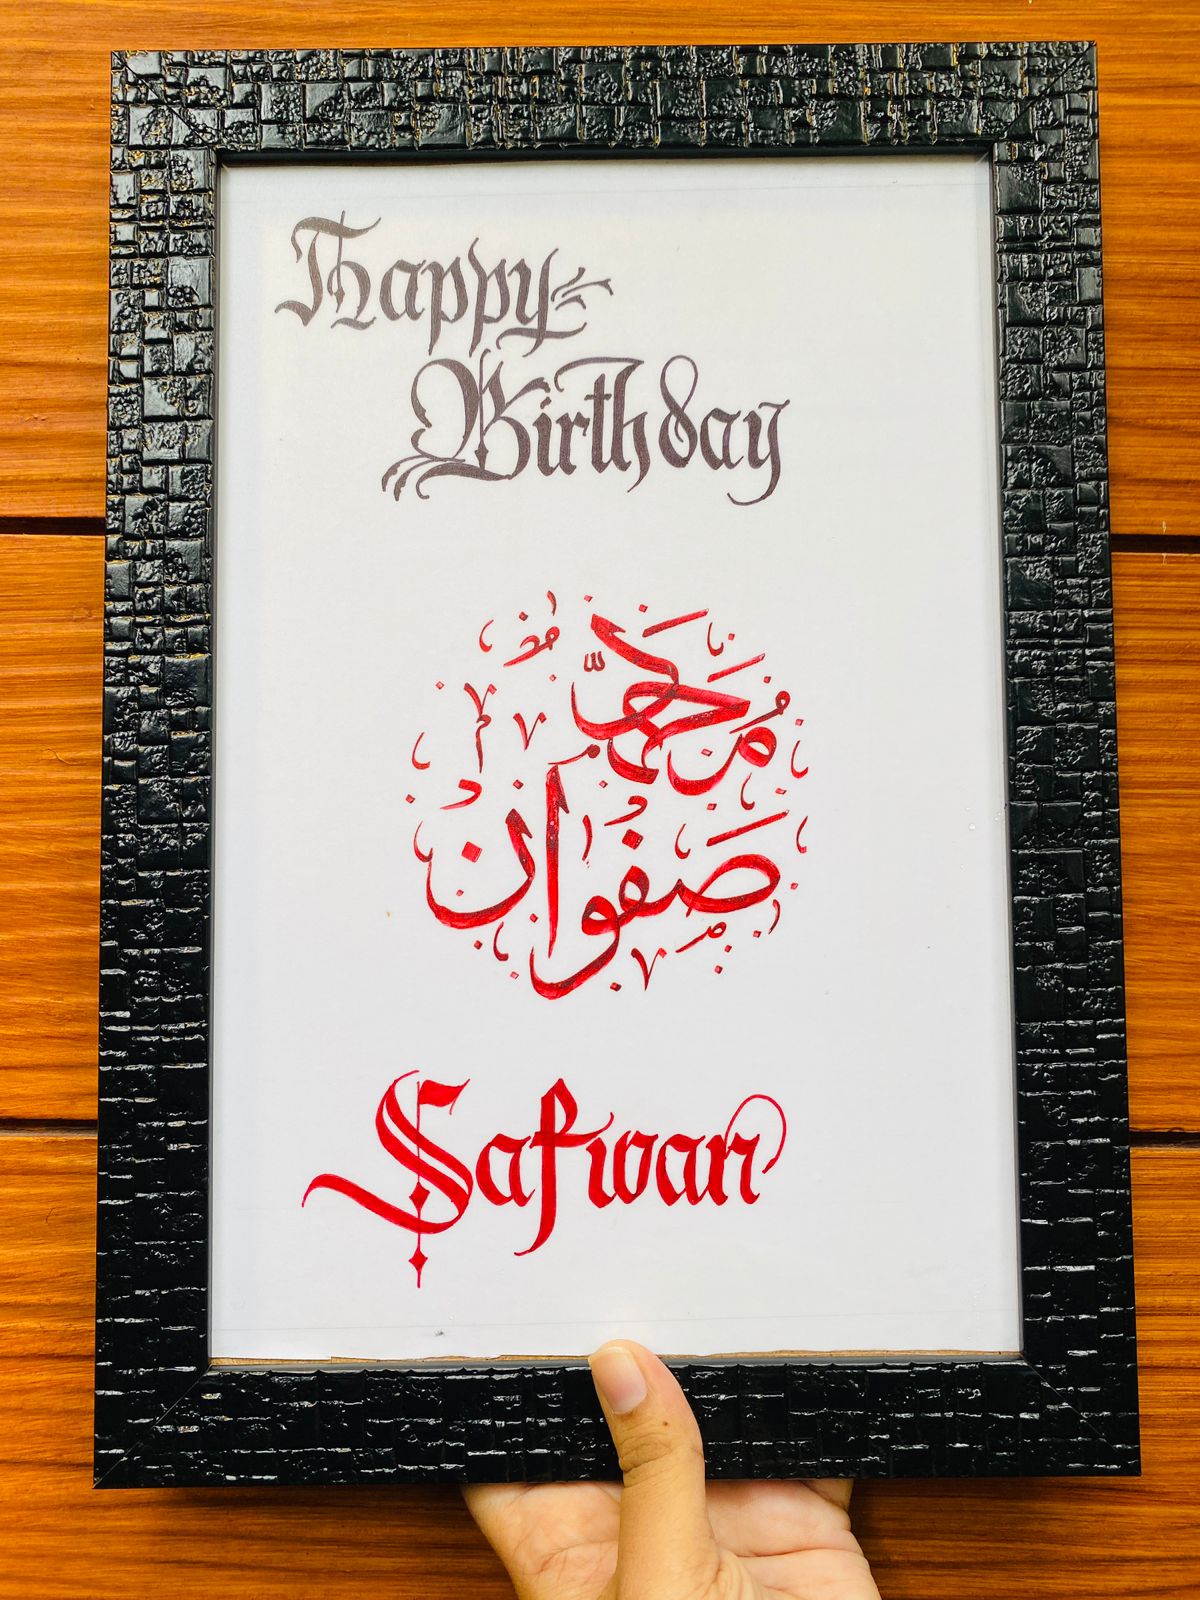 Happy
Birthday
مُحَمَّد
صَفْوَان
Safwan